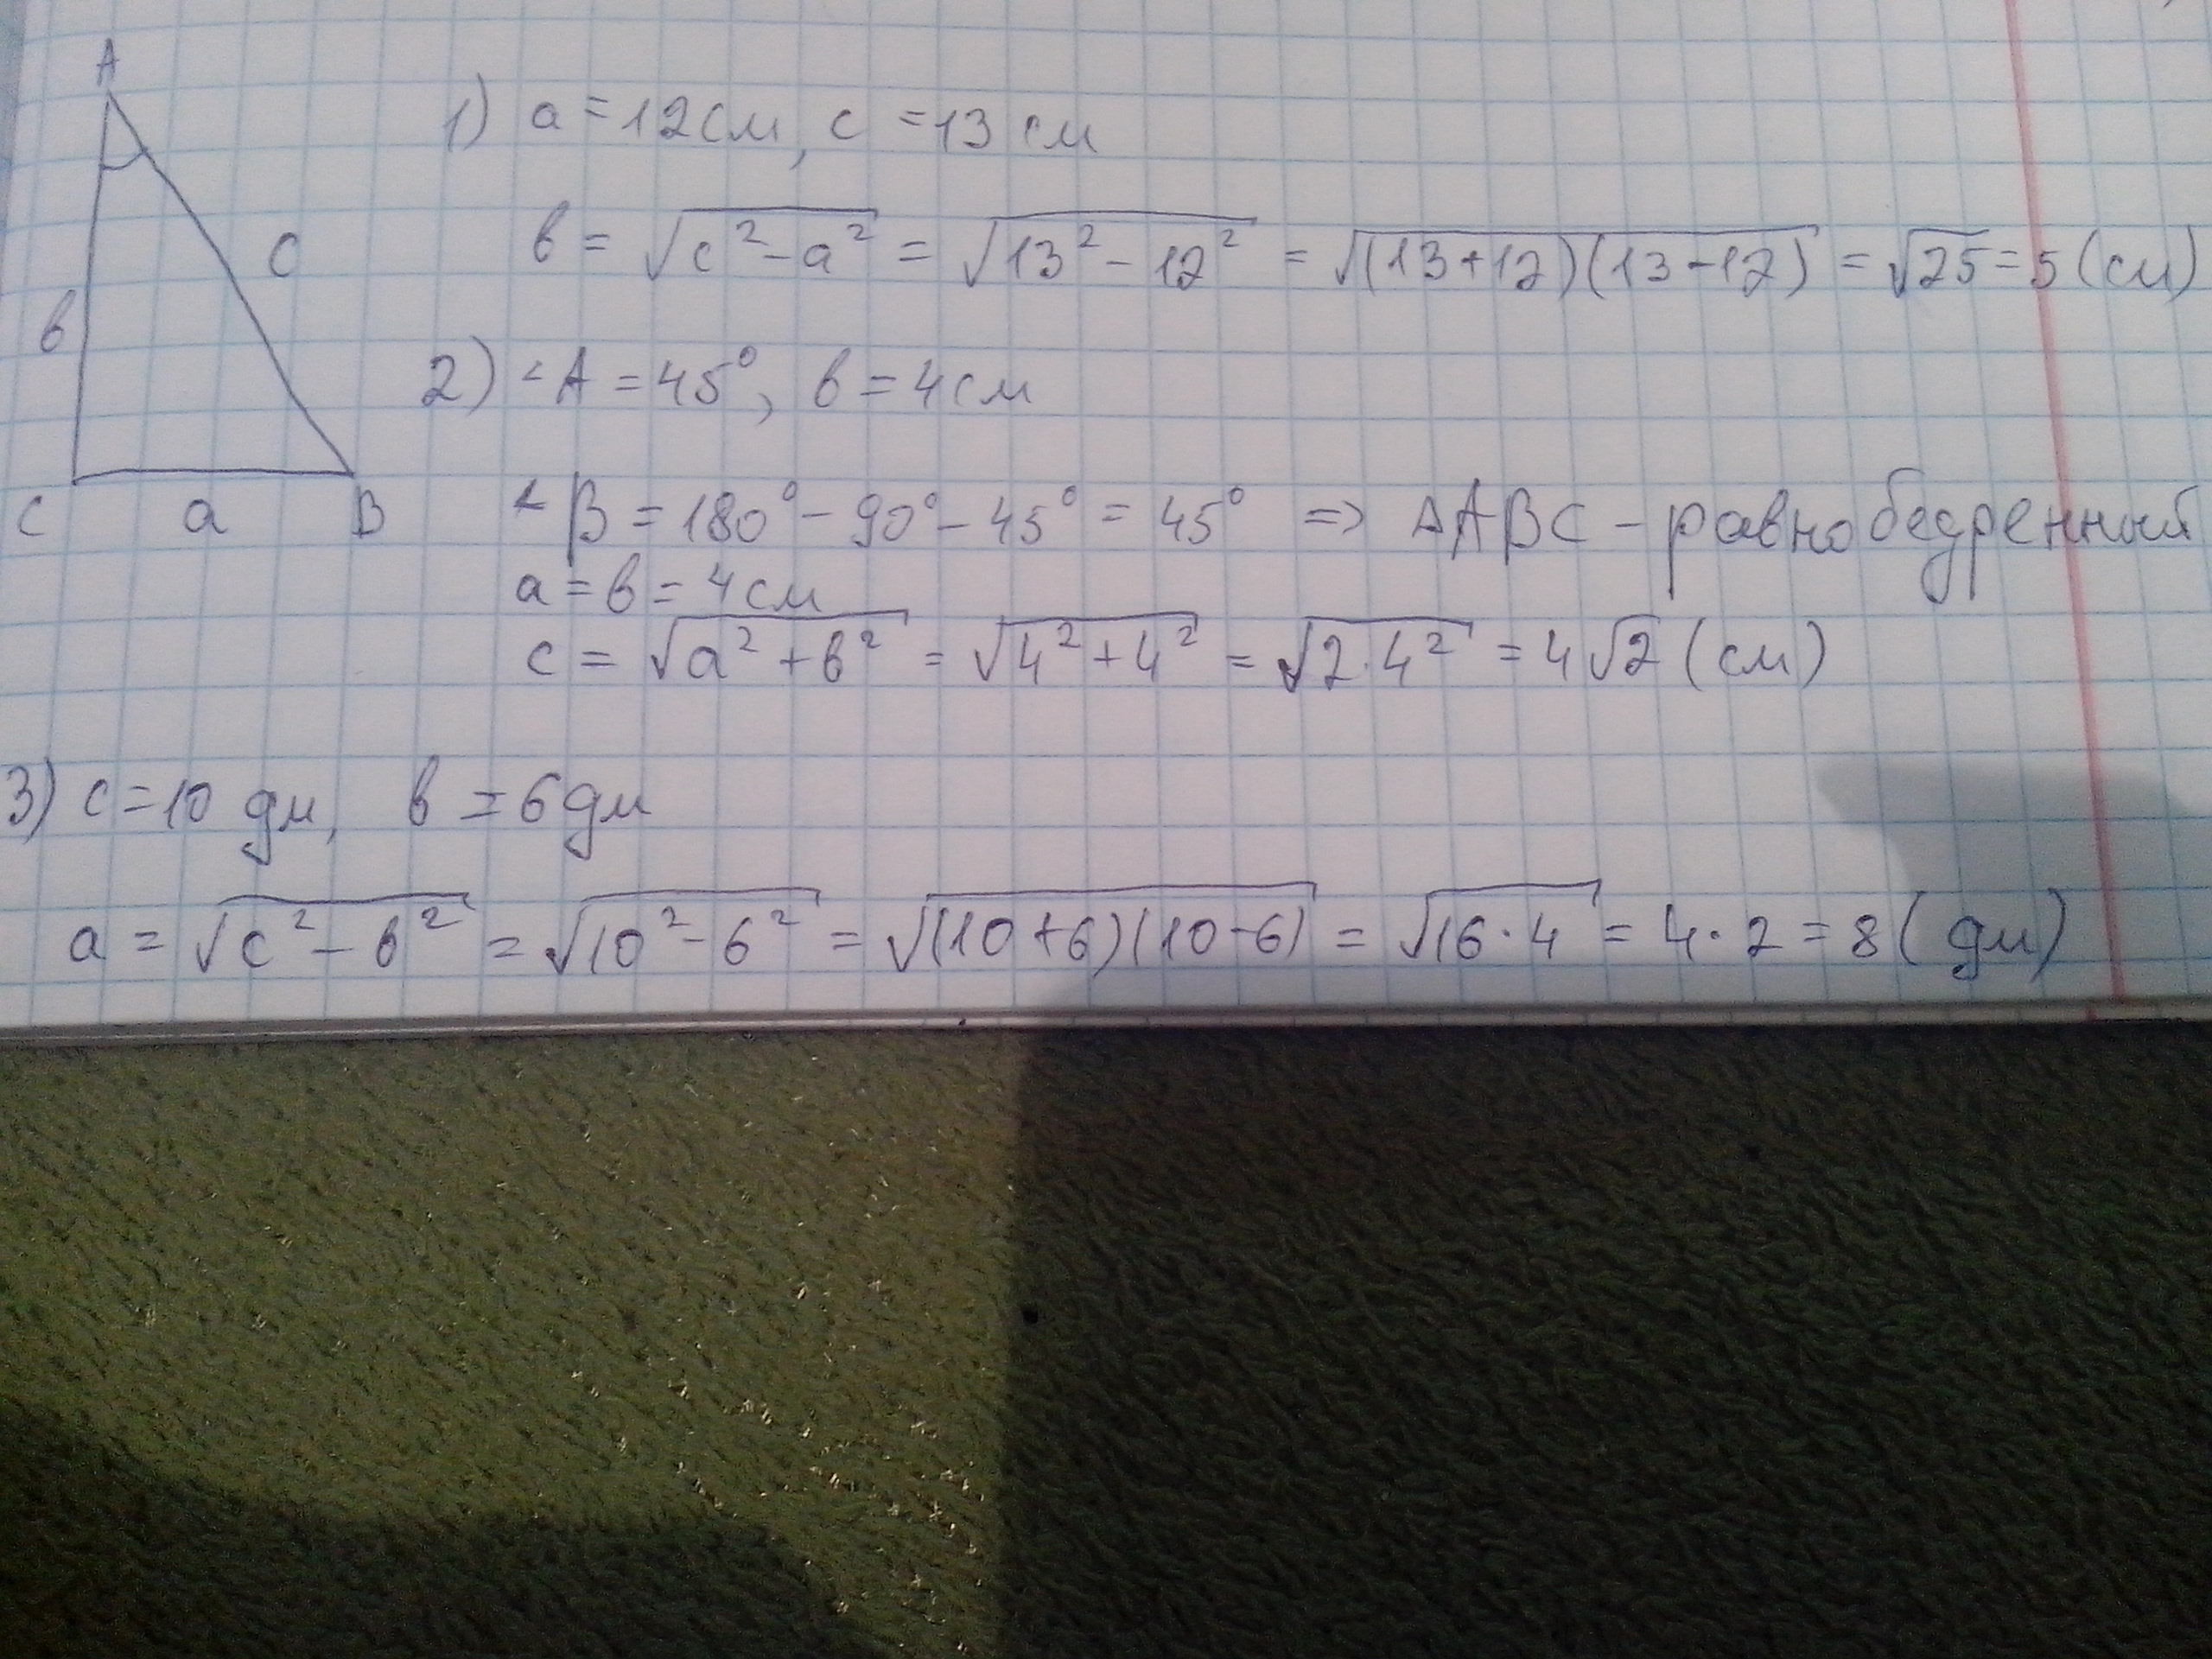 A
в
c
C
a
B
1) a = 12 см, c = 13 см
в = √(c² - a²) = √(13² - 12²) = √((13+12)(13-12)) = √25 = 5 (см)
2) ∠A = 45°, в = 4 см
∠B = 180° - 90° - 45° = 45° => ΔABC - равнобедренный
a = в = 4 см
c = √(a² + в²) = √(4² + 4²) = √(2·4²) = 4√2 (см)
3) c = 10 дм, в = 6 дм
a = √(c² - в²) = √(10² - 6²) = √((10+6)(10-6)) = √(16·4) = 4·2 = 8 (дм)